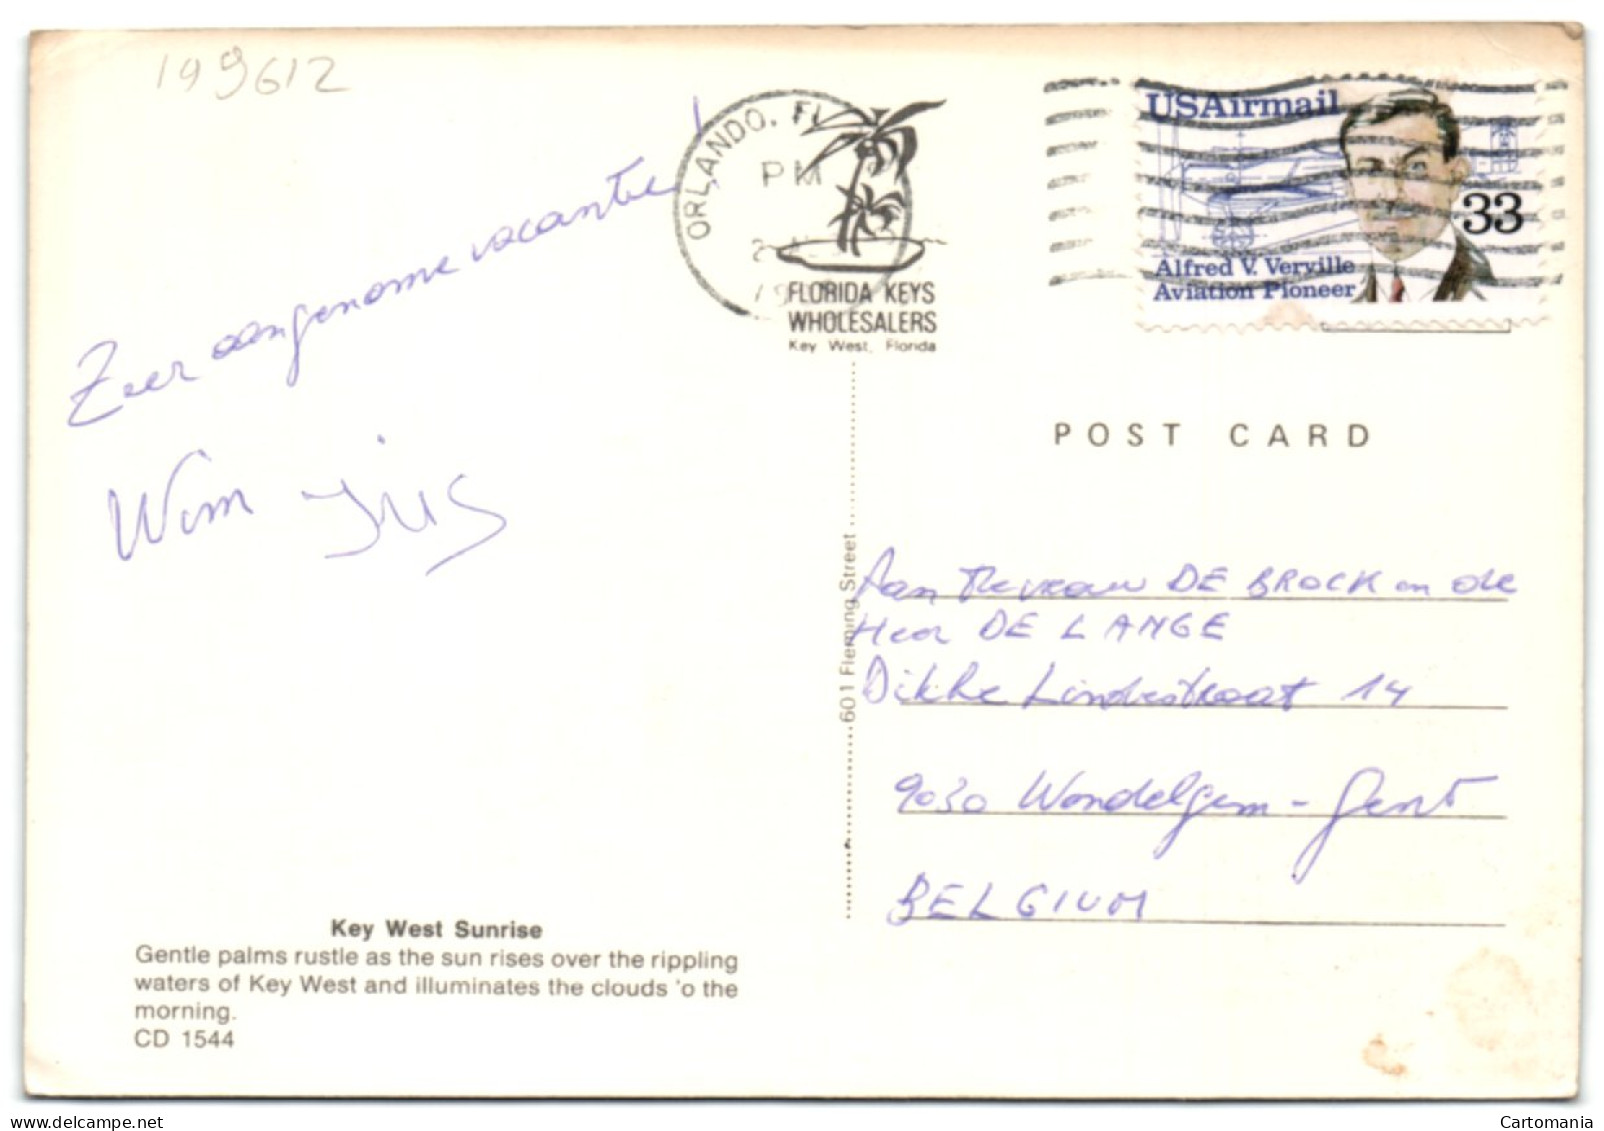 199612
ORLANDO, FL
PM
USAirmail
33
Alfred V. Verville
Aviation Pioneer
FLORIDA KEYS
WHOLESALERS
Key West, Florida
Zeer aangename vacantie!
Wim
POST CARD
601 Fleming Street
Aan Mevrouw DE BROCK en de
Heer DE LANGE
Dikke Lindestraat 14
9030 Wondelgem - Gent
BELGIUM
Key West Sunrise
Gentle palms rustle as the sun rises over the rippling
waters of Key West and illuminates the clouds 'o the
morning.
CD 1544
Cartomania